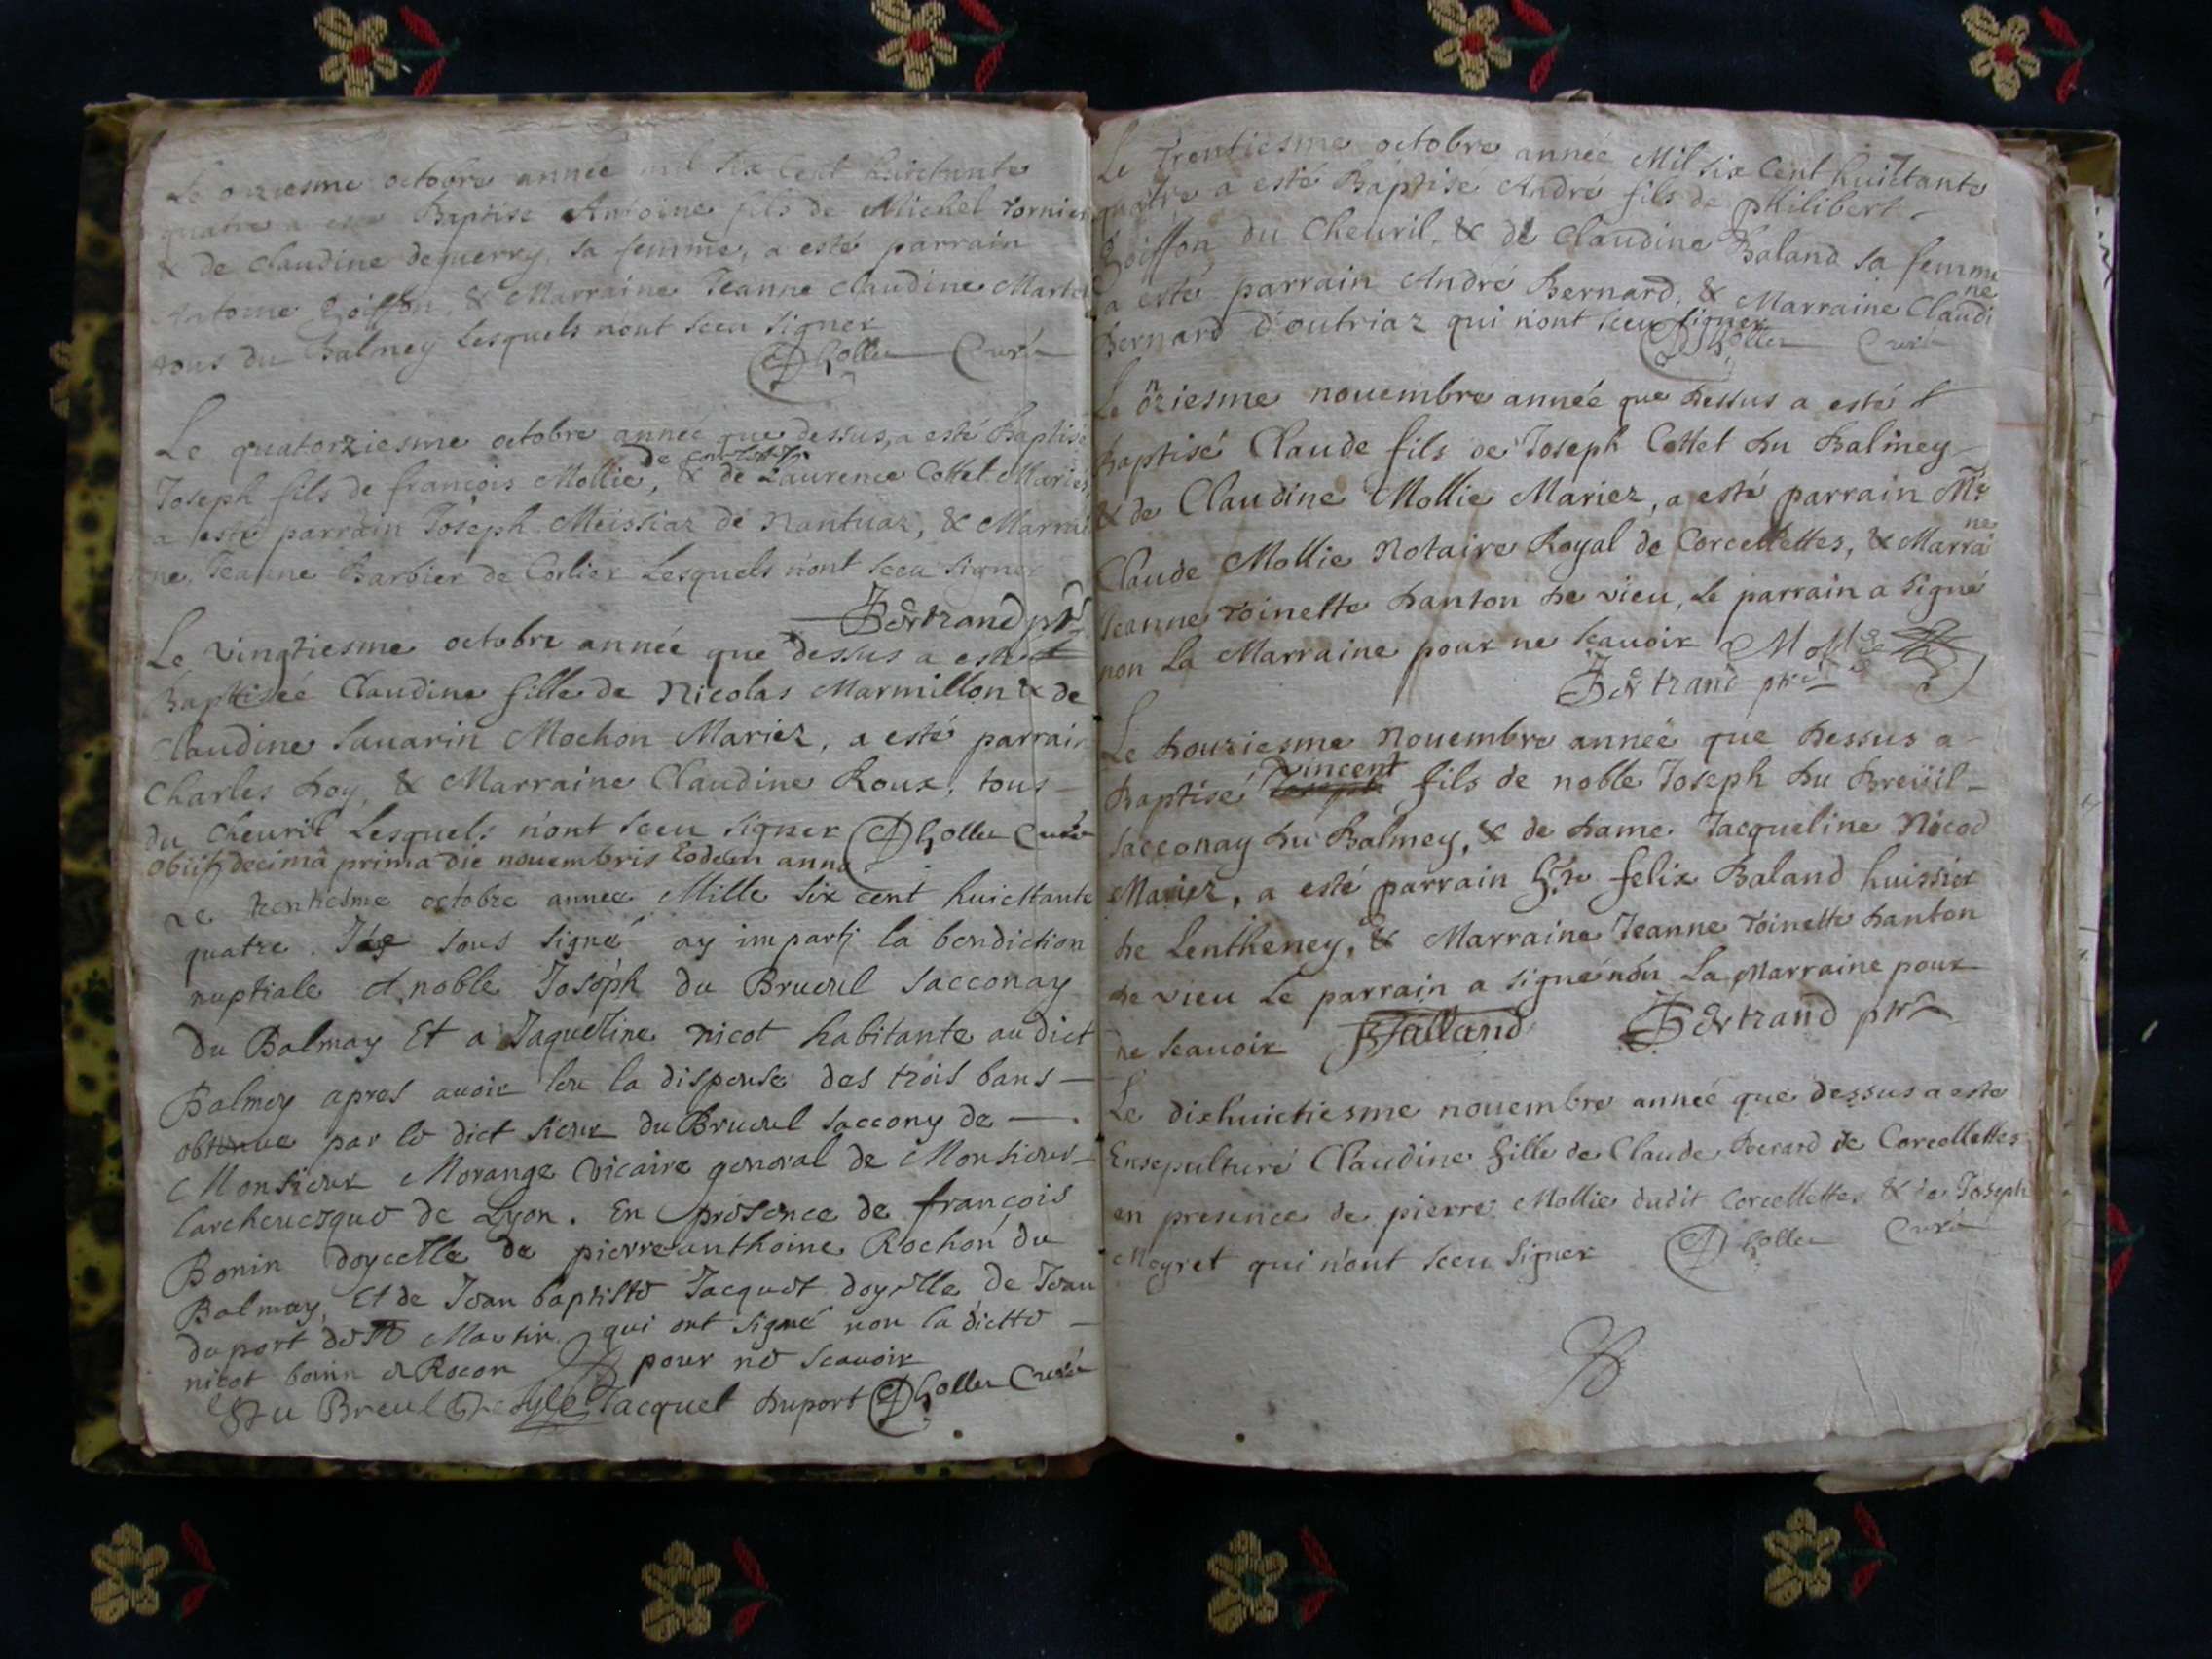 Le onziesme octobre année mil six cent huictante
quatre a esté Baptise Antoine fils de Michel Tornier
& de Claudine deguerry, sa femme, a esté parrain
Antoine Goiffon, & Marraine Jeanne Claudine Martel
tous du Balmey Lesquels n'ont sceu signer
Curé
Le quatorziesme octobre année que dessus, a esté Baptisé
Joseph fils de françois Mollie, & de Laurence Cottet Mariés,
a esté parrain Joseph Meissiaz de Nantuaz, & Marrai
ne, Jeanne Barbier de Corlier Lesquels n'ont sceu signer
Bertrand ptre
Le vingtiesme octobre année que dessus a esté
Baptiseé Claudine fille de Nicolas Marmillon & de
Claudine Sauarin Mochon Mariez, a esté parrain
Charles hoy, & Marraine Claudine Roux, tous
du Cheuril Lesquels n'ont sceu signer Curé
obiit decimâ prima die nouembris Eodem anno
Le trentiesme octobre annee Mille six cent huicttante
quatre. Je sous signé ay imparti la bendiction
nuptiale A noble Joseph du Brueul Sacconay
du Balmay Et a Jaqueline nicot habitante audict
Balmey apres auoir leu la dispense des trois bans
obtenue par le dict sieur du Brueul saccony de
Monsieur Morange Vicaire general de Monsieur
Larcheuesque de Lyon. En presence de françois
Bonin doycelle de pierre anthoine Rochon du
Balmay, Et de Jean baptiste Jacquet doyelle, de Jean
duport de St Martin qui ont signé non la dictte
nicot bonin & Rocon pour ne scauoir
Du Breul Jacquet huport Curé
Le Trentiesme octobre année Mil six Cent huictante
quatre a esté Baptisé André fils de Philibert
Goiffon du Cheuril, & de Claudine Baland sa femme
a esté parrain André Bernard, & Marraine Claudi
ne
Bernard D'outriaz qui n'ont sceu signer
Curé
Le onziesme nouembre année que dessus a esté
Baptisé Claude fils de Joseph Cottet du Balmey
& de Claudine Mollie Mariez, a esté parrain Mre
Claude Mollie Notaire Royal de Corcellettes, & Marrai
ne
Jeanne Toinette Danton de vieu, Le parrain a signé
non La Marraine pour ne scauoir Mollie
Bertrand ptre
Le Douziesme Nouembre année que dessus a
Baptisé vincent fils de noble Joseph du Breüil
sacconay du Balmey, & de dame Jacqueline Nicod
Mariez, a esté parrain felix Baland huissier
de Lentheney, & Marraine Jeanne Toinette Danton
de vieu Le parrain a signé non La Marraine pour
ne scauoir Balland Bertrand ptre
Le dixhuictiesme nouembre année que dessus a esté
Ensepulturé Claudine fille de Claude Berard de Corcellettes
en presence de pierre Mollie dudit Corcellettes & de Joseph
Meyret qui n'ont sceu signer Curé